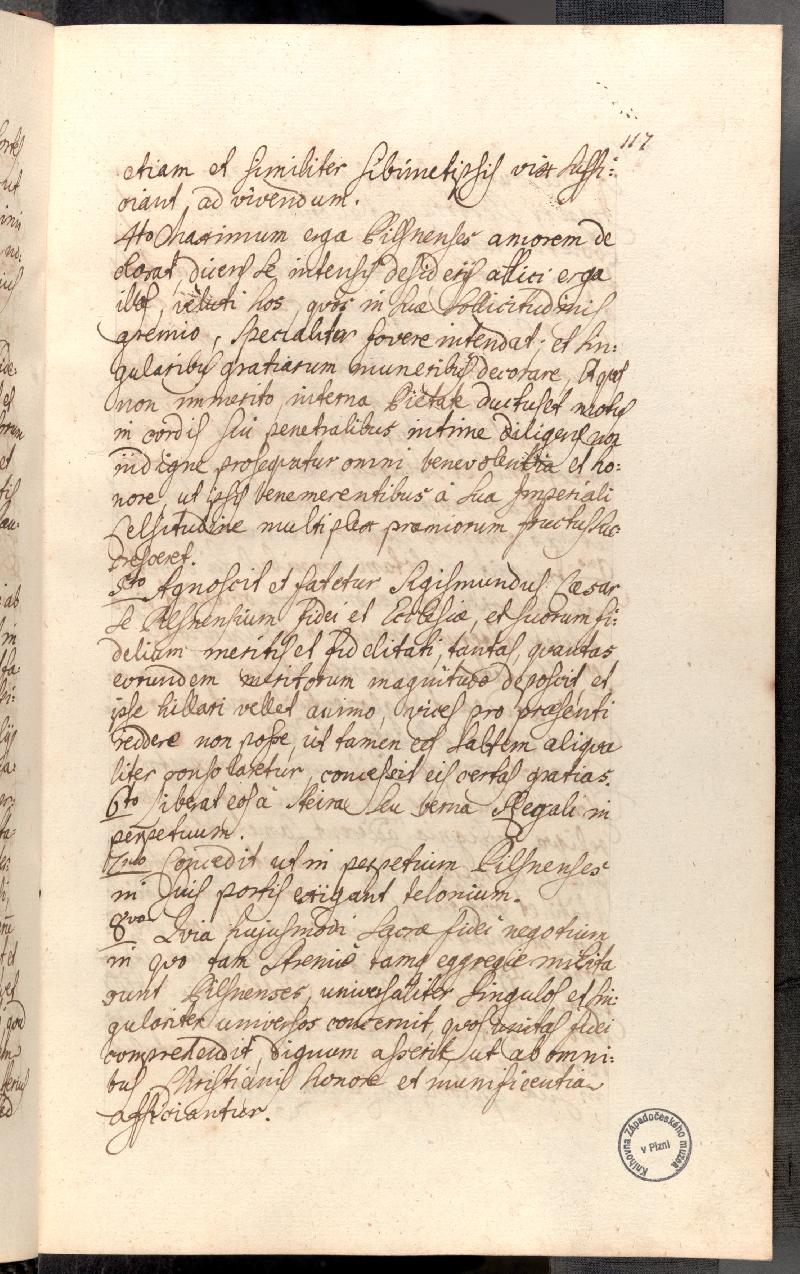 117
etiam et similiter sibimetipsis vix suffi:
ciant, ad vivendum.
4to Maximum erga Pilsnenses amorem de
clarat, dicens se intensis desiderijs affici erga
illos, veluti hos, quos in suæ sollicitudinis
gremio, specialiter fovere intendat, et sin:
gularibus gratiarum muneribus decorare, Et quos
non immerito, interna Pietate ductus et motus
in cordis sui penetralibus intime diligens, non
indigne prosequatur omni benevolentia et ho:
nore ut ipsis benemerentibus à sua Imperiali
Celsitudine multiplex præmiorum fructus suc:
cresceret.
5to Agnoscit et fatetur Sigismundus Cæsar
se Pilsnensium Fidei et Ecclesiæ, et suorum fi:
delium meritis et fidelitati, tantas, quantas
eorundem meritorum magnitudo deposcit, et
ipse hillari vellet animo, vices pro præsenti
reddere non posse, ut tamen eos saltem aliqua
liter consolaretur, concessit eis certas gratias.
6to Liberat eos à Steira seu berna Regali in
perpetuum.
7mo Concedit ut in perpetuum Pilsnenses
in suis portis exigant telonium.
8vo Quia hujusmodi sacræ fidei negotium
in quo tam strenue tamq eggregie milita
runt Pilsnenses, universaliter singulos et sin:
gulariter universos concernit, quos unitas fidei
comprehendit, dignum asserit ut ab omni:
bus Christianis honore et munificentia
afficiantur.
Knihovna Západočeského muzea
v Plzni